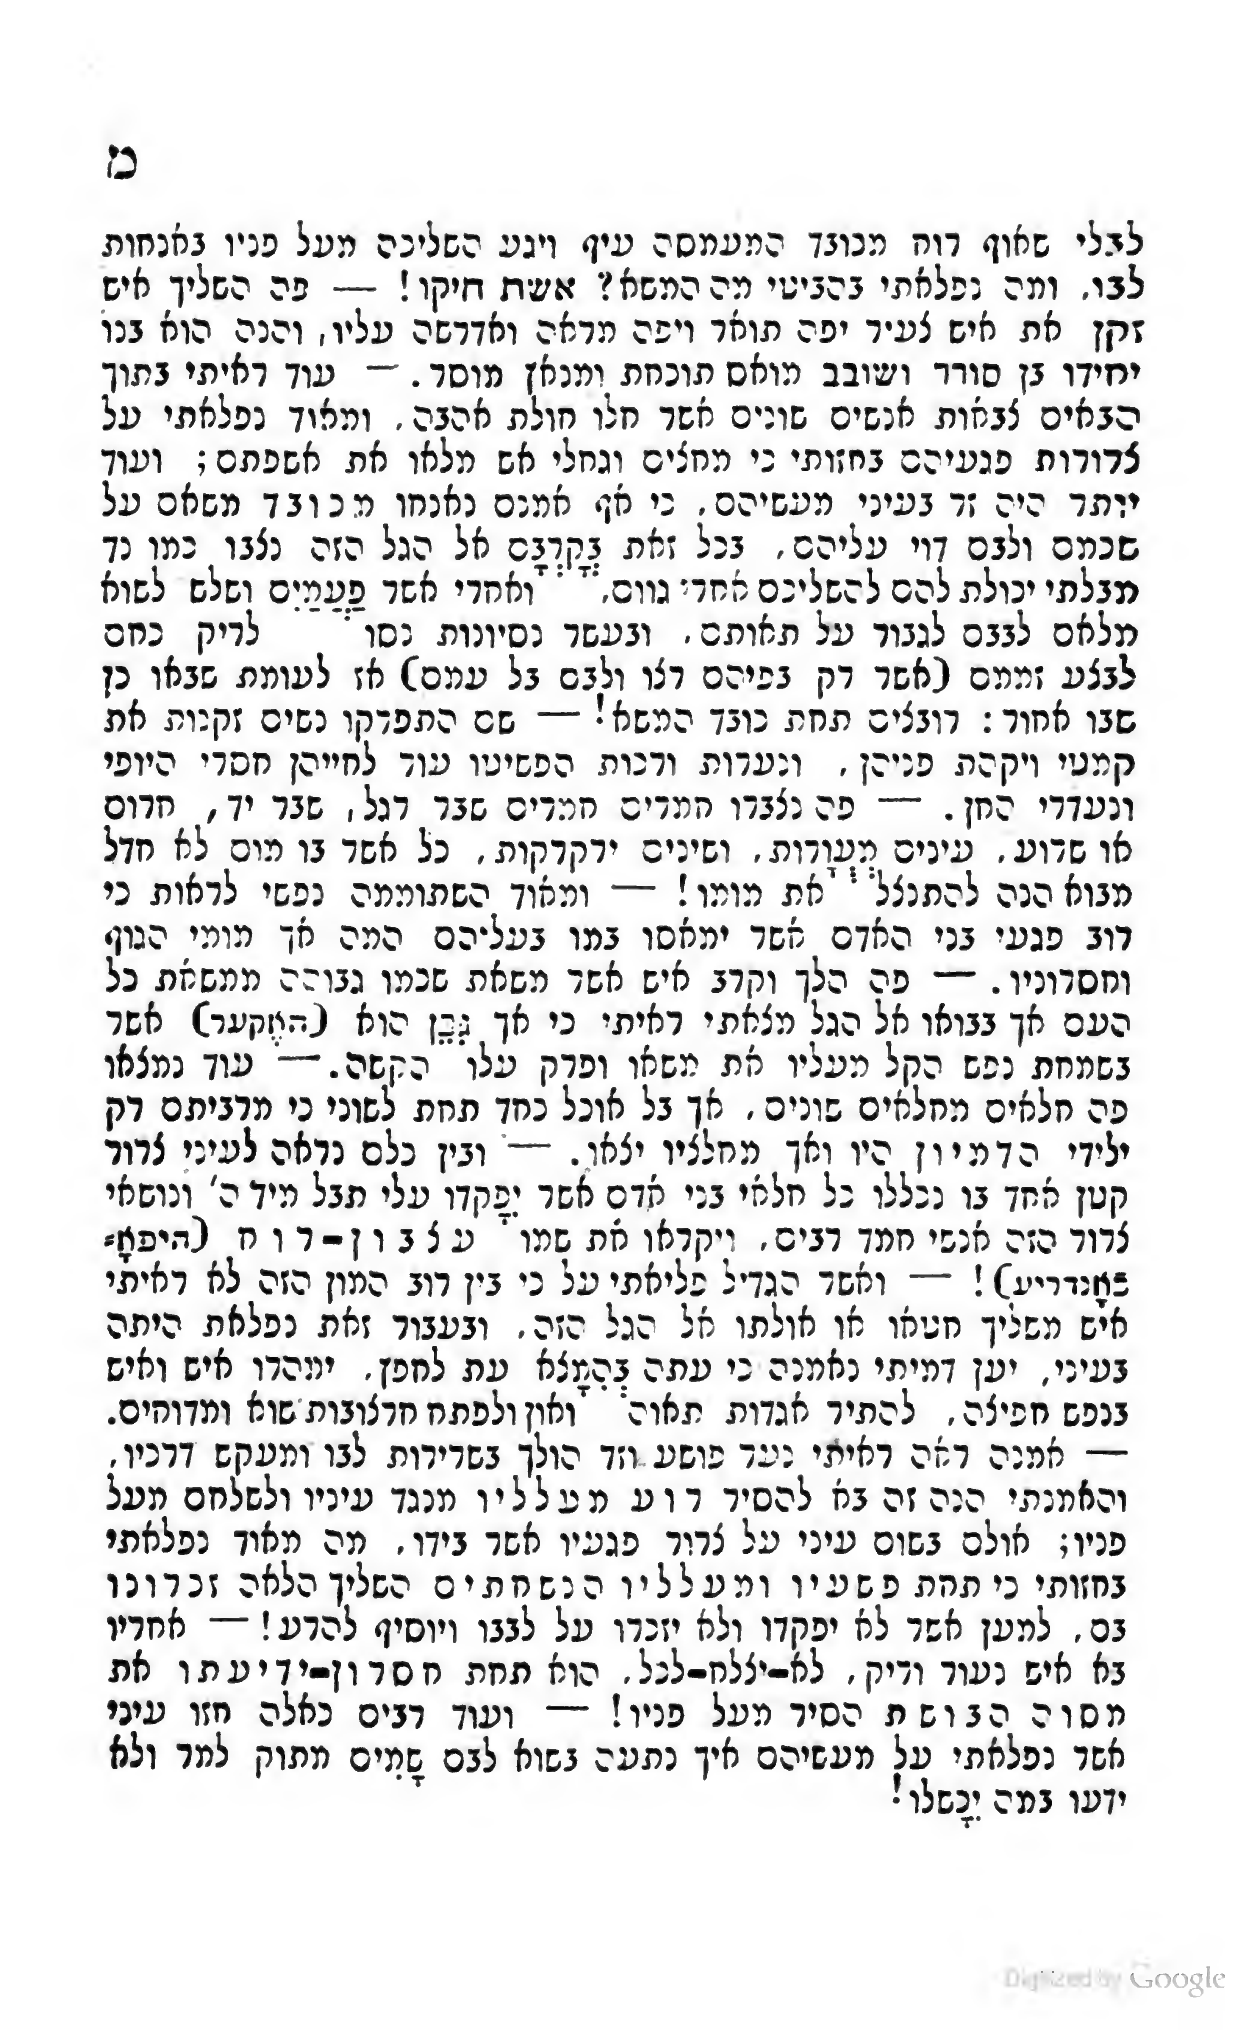 מ
לבלי שאוף רוח מכובד המעמסה עיף ויגע השליכה מעל פניו באנחות
לבו. ומה נפלאתי בהביטי מה המשא? אשת חיקו! — פה השליך איש
זקן את איש צעיר יפה תואר ויפה מראה ואדרשה עליו, והנה הוא בנו
יחידו בן סורר ושובב מואס תוכחת ומנאץ מוסר. — עוד ראיתי בתוך
הבאים צבאות אנשים שונים אשר חלו חולת אהבה. ומאוד נפלאתי על
צרורות פגעיהם בחזותי כי מחצים וגחלי אש מלאו את אשפתם; ועוד
יותר היה זר בעיני מעשיהם. כי אף אמנם נאנחו מכובד משאם על
שכמם ולבם דוי עליהם. בכל זאת בְּקָרְבָם אל הגל הזה נצבו כמו נד
מבלתי יכולת להם להשליכם אחרי גוום. ואחרי אשר פַּעֲמַיִם ושלש לשוא
מלאם לבבם לגבור על תאותם. ובעשר נסיונות נסו לריק כחם
לבצע זממם (אשר רק בפיהם רצו ולבם בל עמם) אז לעומת שבאו כן
שבו אחור: רובצים תחת כובד המשא! — שם התפרקו נשים זקנות את
קמטי ויקהת פניהן. ונערות ורכות הפשיטו עור לחייהן חסרי היופי
ונעדרי החן. — פה נצברו חמרים חמרים שבר רגל, שבר יד, חרום
או שרוע. עינים מְעֻוָרוֹת. ושינים ירקרקות. כל אשר בו מום לא חדל
מבוא הנה להתנצל את מומו! — ומאוד השתוממה נפשי לראות כי
רוב פגעי בני האדם אשר ימאסו במו בעליהם המה אך מומי הגוף
וחסרוניו. — פה הלך וקרב איש אשר משאת שכמו גבוהה ממשאת כל
העם אך בבואו אל הגל מצאתי ראיתי כי אך גִּבֵּן הוא (האָקער) אשר
בשמחת נפש הקל מעליו את משאו ופרק עלו הקשה. — עוד נמצאו
פה חלאים מחלאים שונים. אך בל אוכל כחד תחת לשוני כי מרביתם רק
ילידי הדמיון היו ואך מחלציו יצאו. — ובין כלם נראה לעיני צרור
קטן אחד בו נכללו כל חלאי בני אדם אשר יִפָּקדו עלי תבל מיד ה' ונושאי
צרור הזה אנשי חמד רבים. ויקראו את שמו עצבון-רוח (היפאָ=
כאָנדריע)! — ואשר הגדיל פליאתי על כי בין רוב המון הזה לא ראיתי
איש משליך חטאו או אולתו אל הגל הזה. ובעבור זאת נפלאת היתה
בעיני, יען דמיתי נאמנה כי עתה בְּהִמָּצֵא עת לחפץ. ימהרו איש ואיש
בנפש חפיצה. להתיר אגדות תאוה ואון ולפתח חרצובות שוא ומדוחים.
— אמנה ראה ראיתי נער פושע וזד הולך בשרירות לבו ומעקש דרכיו.
והאמנתי הנה זה בא להסיר רוע מעלליו מנגד עיניו ולשלחם מעל
פניו; אולם בשום עיני על צרור פגעיו אשר בידו. מה מאוד נפלאתי
בחזותי כי תחת פשעיו ומעלליו הנשחתים השליך הלאה זכרונו
בם. למען אשר לא יפקדו ולא יזכרו על לבבו ויוסיף להרע! — אחריו
בא איש נעור וריק. לא-יצלח-לכל. הוא תחת חסרון-ידיעתו את
מסוה הבושת הסיר מעל פניו! — ועוד רבים כאלה חזו עיני
אשר נפלאתי על מעשיהם איך נתעה בשוא לבם שָׂמִים מתוק למר ולא
ידעו במה יִכָּשלו!
Digitized by Google